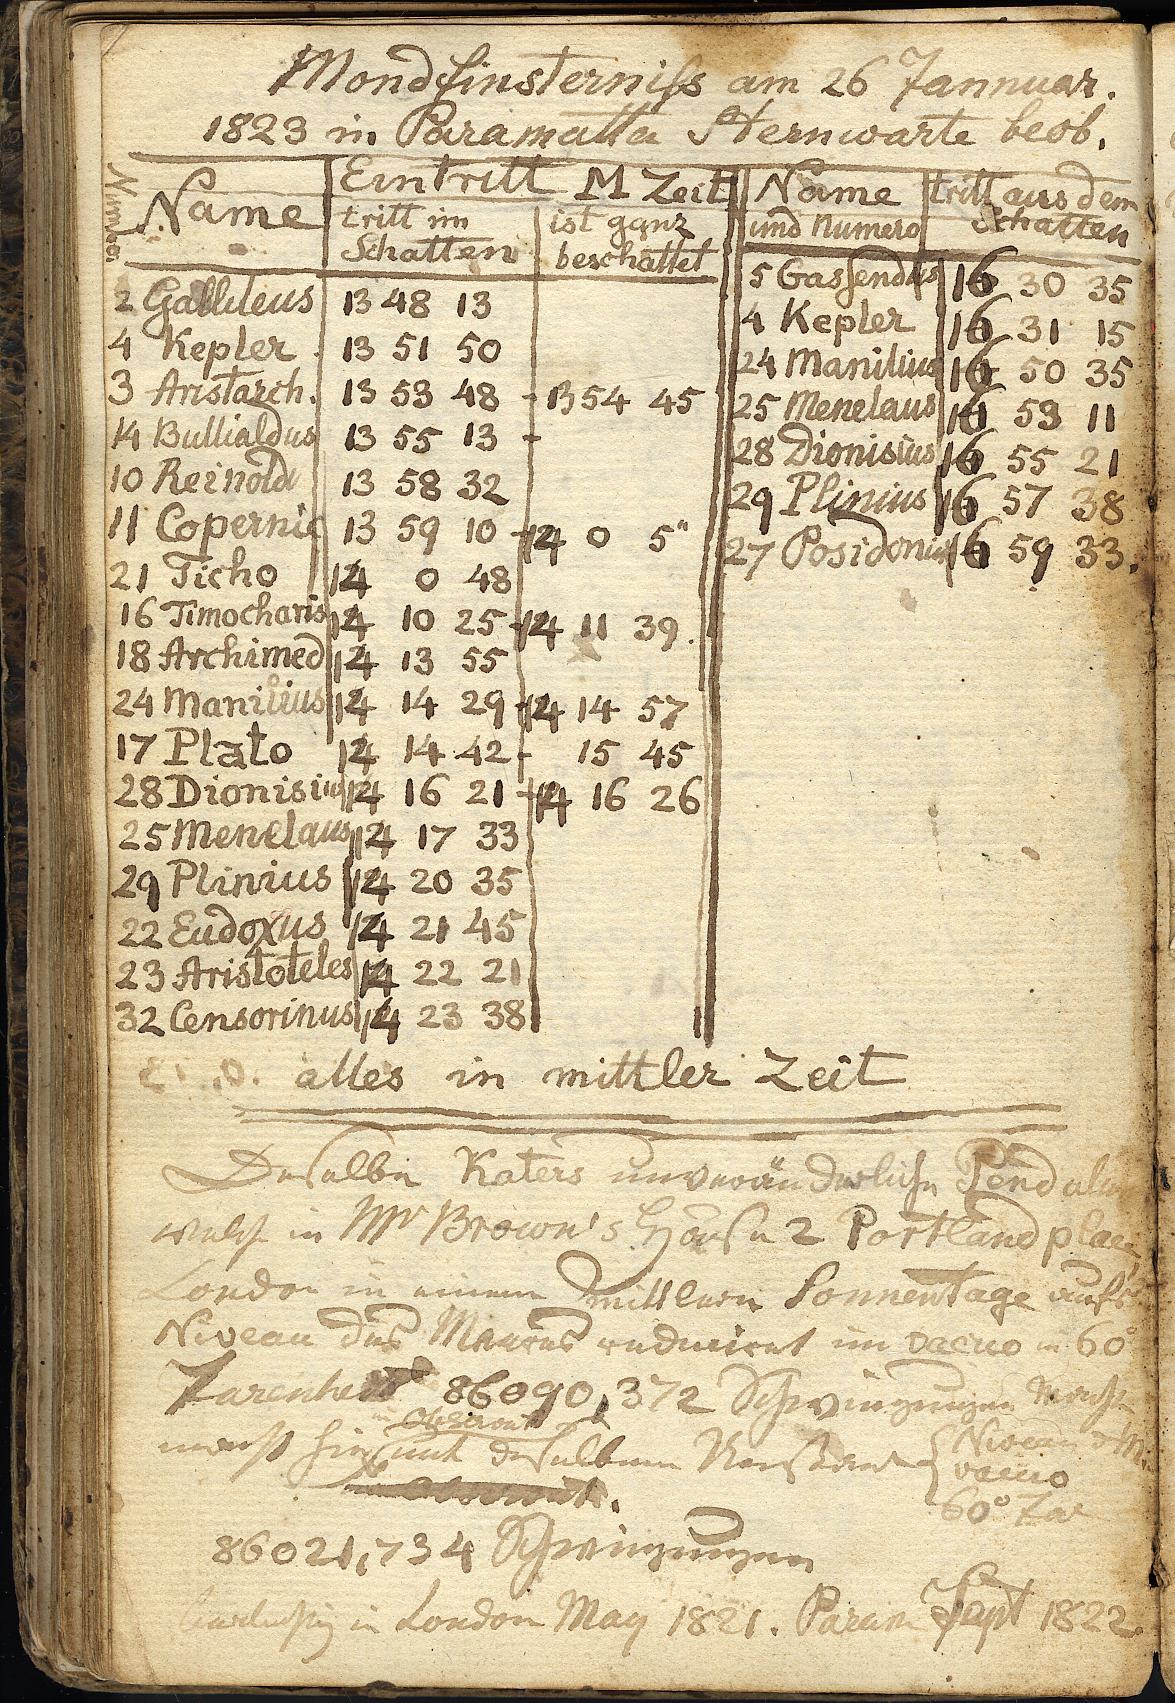 Mondfinsterniss am 26 Jannuar.
1823 in Paramatta Sternwarte beob.
Numero. Name Eintritt M Zeit
tritt im Schatten ist ganz beschattet
2 Gallileus 13 48 13
4 Kepler 13 51 50
3 Aristarch. 13 53 48 - 13 54 45
14 Bullialdus 13 55 13 -
10 Reinold 13 58 32
11 Copernic 13 59 10 - 14 0 5"
21 Ticho 14 0 48
16 Timocharis 14 10 25 - 14 11 39.
18 Archimed 14 13 55
24 Manilius 14 14 29 - 14 14 57
17 Plato 14 14 42 - 15 45
28 Dionisius 14 16 21 - 14 16 26
25 Menelaus 14 17 33
29 Plinius 14 20 35
22 Eudoxus 14 21 45
23 Aristoteles 14 22 21
32 Censorinus 14 23 38
Name und Numero tritt aus dem Schatten
5 Gassendus 16 30 35
4 Kepler 16 31 15
24 Manilius 16 50 35
25 Menelaus 16 53 11
28 Dionisius 16 55 21
29 Plinius 16 57 38
27 Posidonius 16 59 33.
alles in mittler Zeit
Deselbe Katers unveränderliche Pendulum
welche in Mr Brown's House 2 Portland place
London in einem mittlern Sonnentage aufs
Niveau des Meeres reduciret im vacuo in 60°
Farenheit 86090,372 Schwingungen
macht hier unter deselben { Niveau d M.
vacuo
60° Far
86021,734 Schwingungen
in London May 1821. Param Sept 1822.